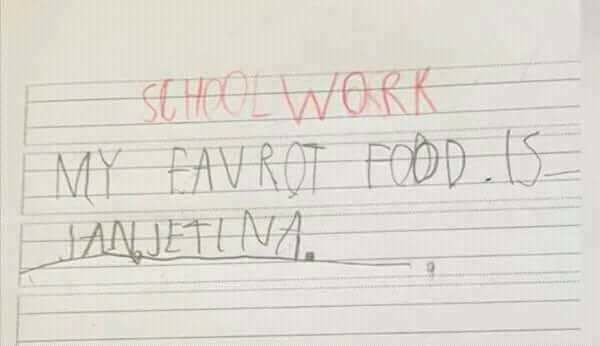 SCHOOL WORK
MY FAVROT FOOD. IS
JANJETINA.